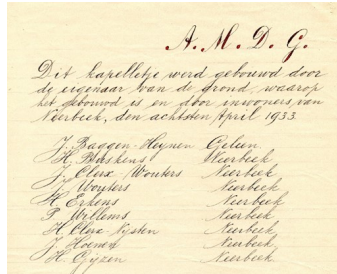 A. M. D. G.
Dit kapelletje werd gebouwd door
de eigenaar van de grond, waarop
het gebouwd is en door inwoners van
Nierbeek, den achtsten April 1933
J. Baggen-Heynen Geleen
H. Nierbeek
J. Clerx-Wouters Nierbeek
J. Wouters Nierbeek
H. Erkens Nierbeek
P. Willems Nierbeek
H. Clerx-Nijsten Nierbeek
J. Hoenen Nierbeek
H. Gijzen Nierbeek